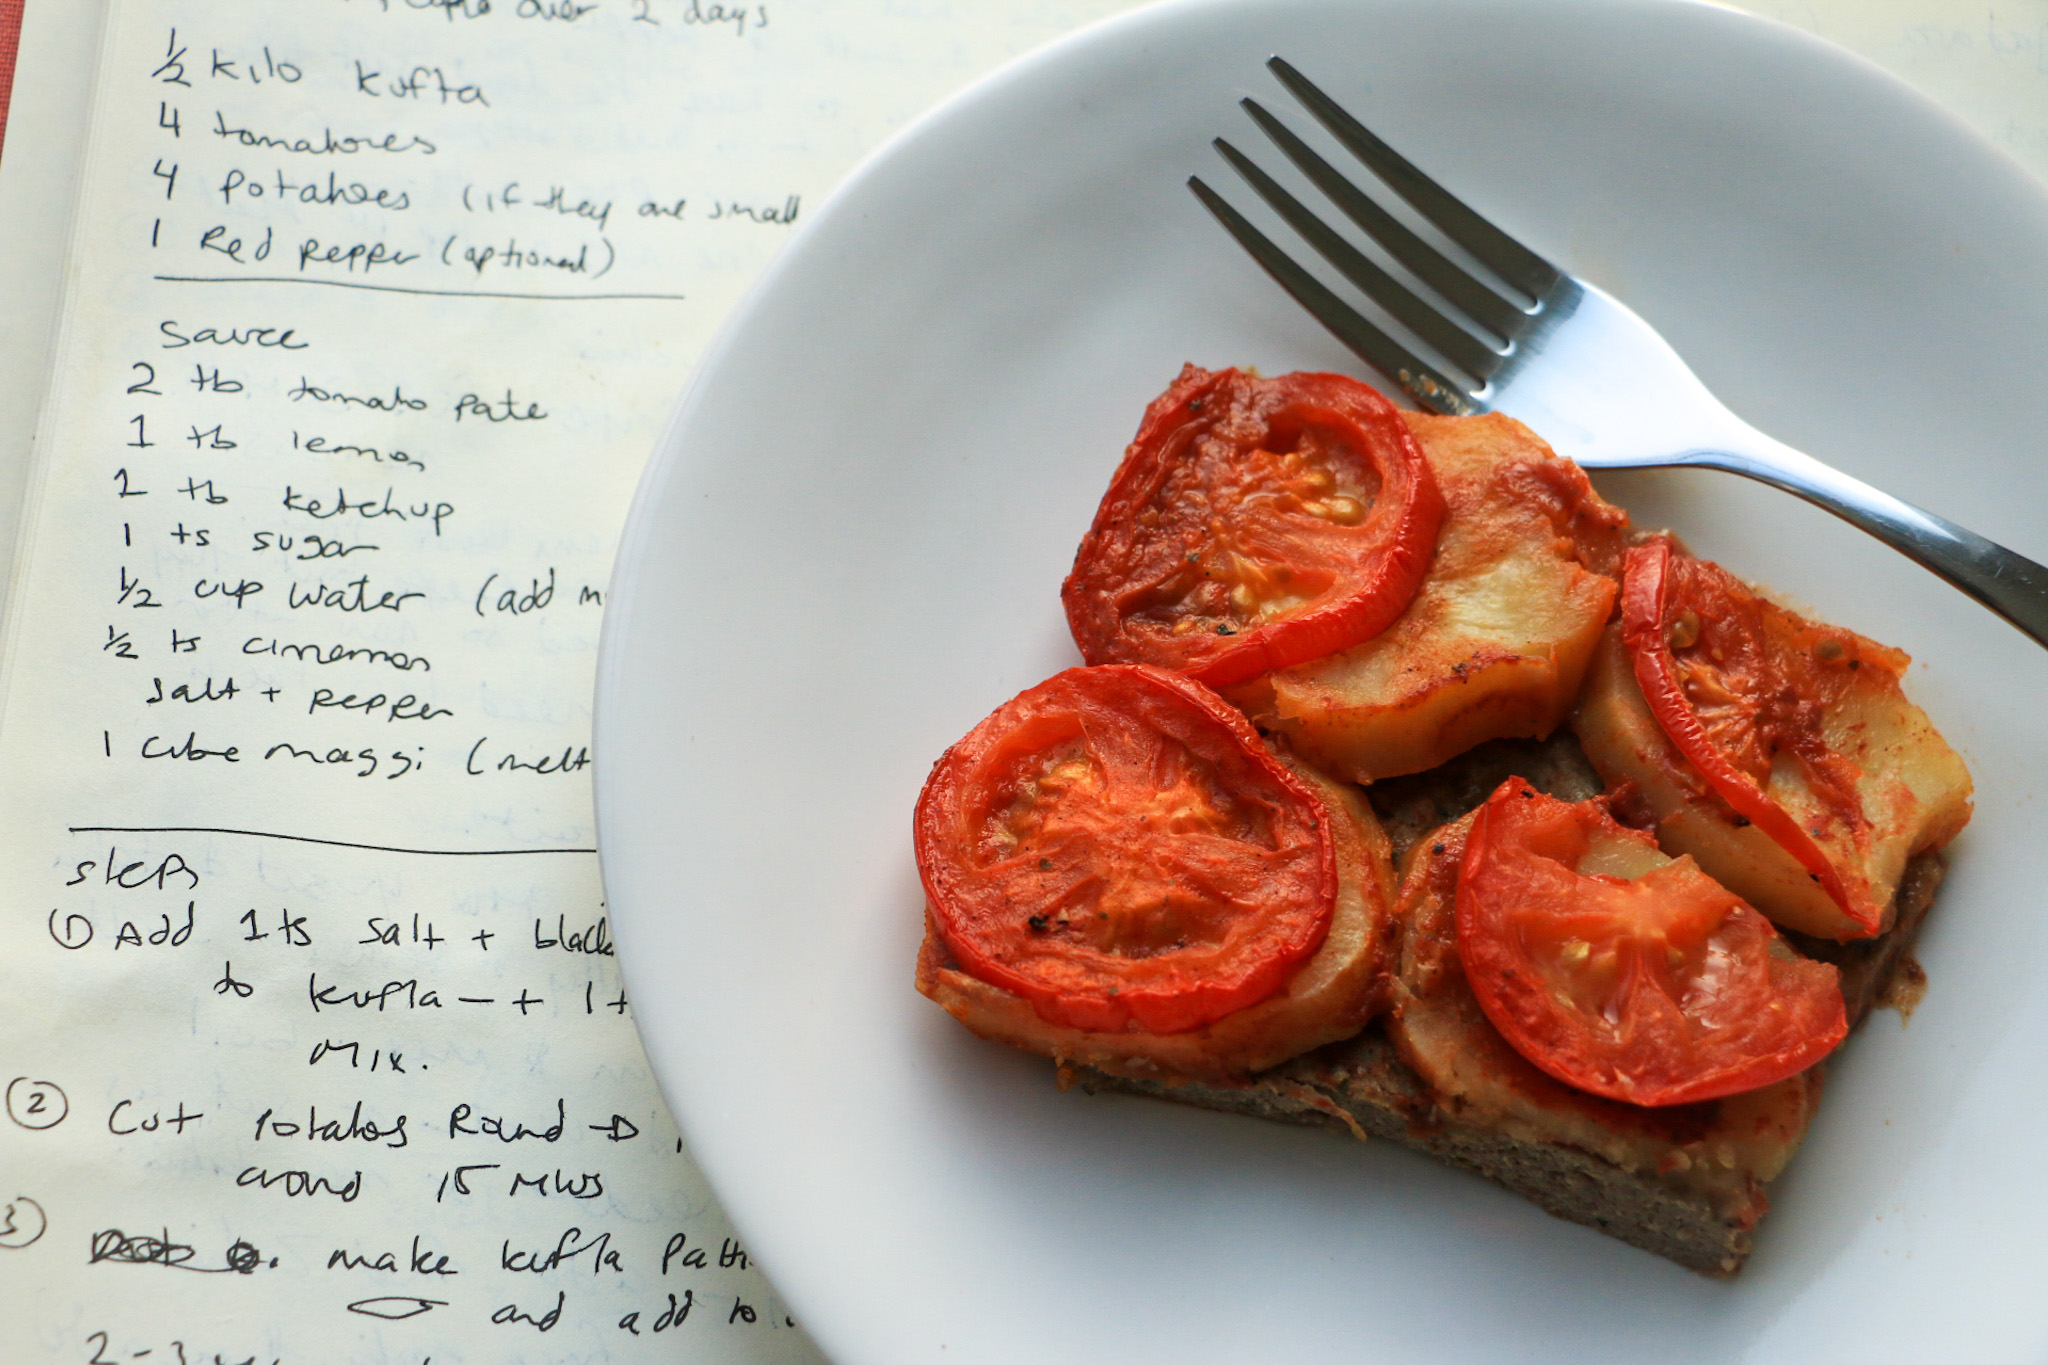 over 2 days
1/2 kilo kufta
4 tomatores
4 potatoes (if they are small
1 Red pepper (optional)
Sauce
2 tb tomato pate
1 tb lemon
1 tb ketchup
1 ts sugar
1/2 cup water (add
1/2 ts cinemon
salt + pepper
1 cube maggi (melt
steps
① Add 1 ts salt + black
to kufta — + 1
Mix.
② Cut potatoes Round
around 15 mins
3 make kufta
and add to
2-3